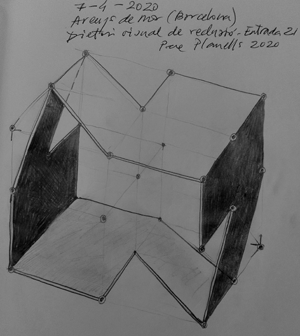 7-4-2020
Arenys de Mar (Barcelona)
Dietari visual de reclusió-Entrada 21
Pere Planells 2020